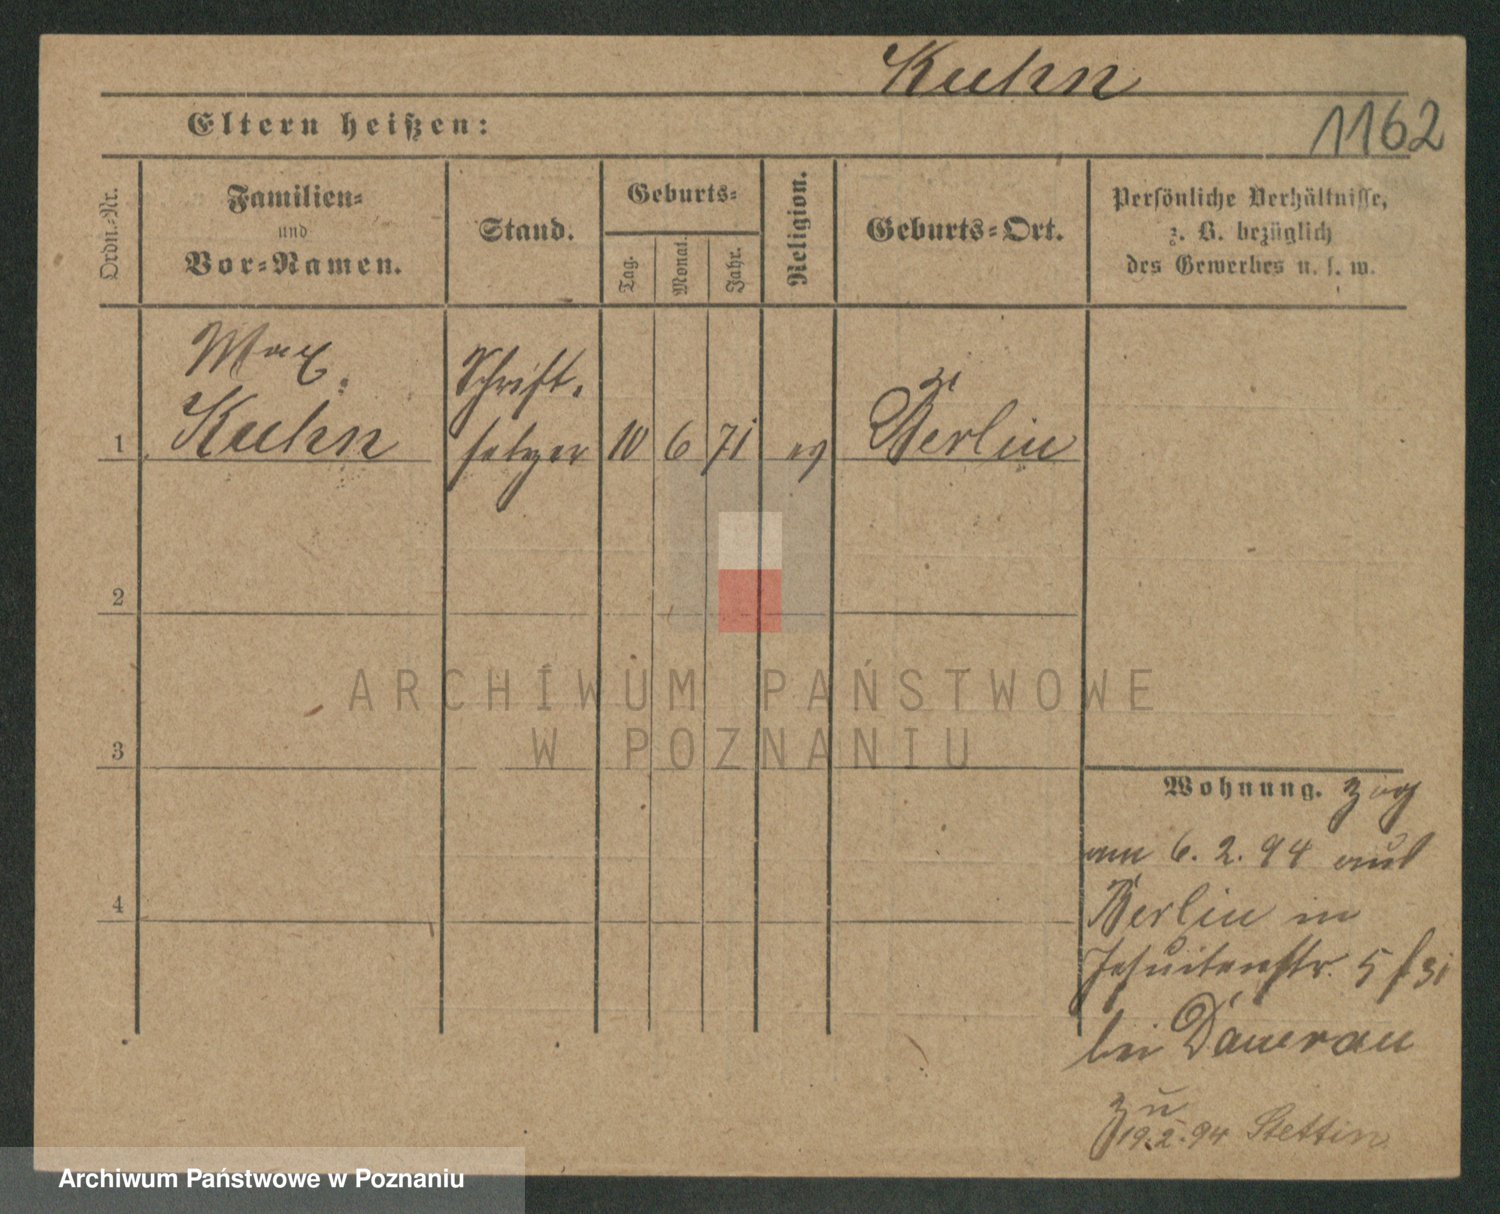 Kuhn
1162
Eltern heißen:
Ordn.-Nr.
Familien-
und
Vor-Namen.
Stand.
Geburts-
Tag.
Monat.
Jahr.
Religion.
Geburts-Ort.
Persönliche Verhältnisse,
z. B. bezüglich
des Gewerbes u. s. w.
Max
Kuhn
Schrift-
setzer
1
10 6 71 ev
Berlin
2
3
4
Wohnung. zog
am 6. 2. 94 aus
Berlin in
Jesuitenstr. 5
bei
19.2.94 Stettin
ARCHIWUM PAŃSTWOWE
W POZNANIU
Archiwum Państwowe w Poznaniu